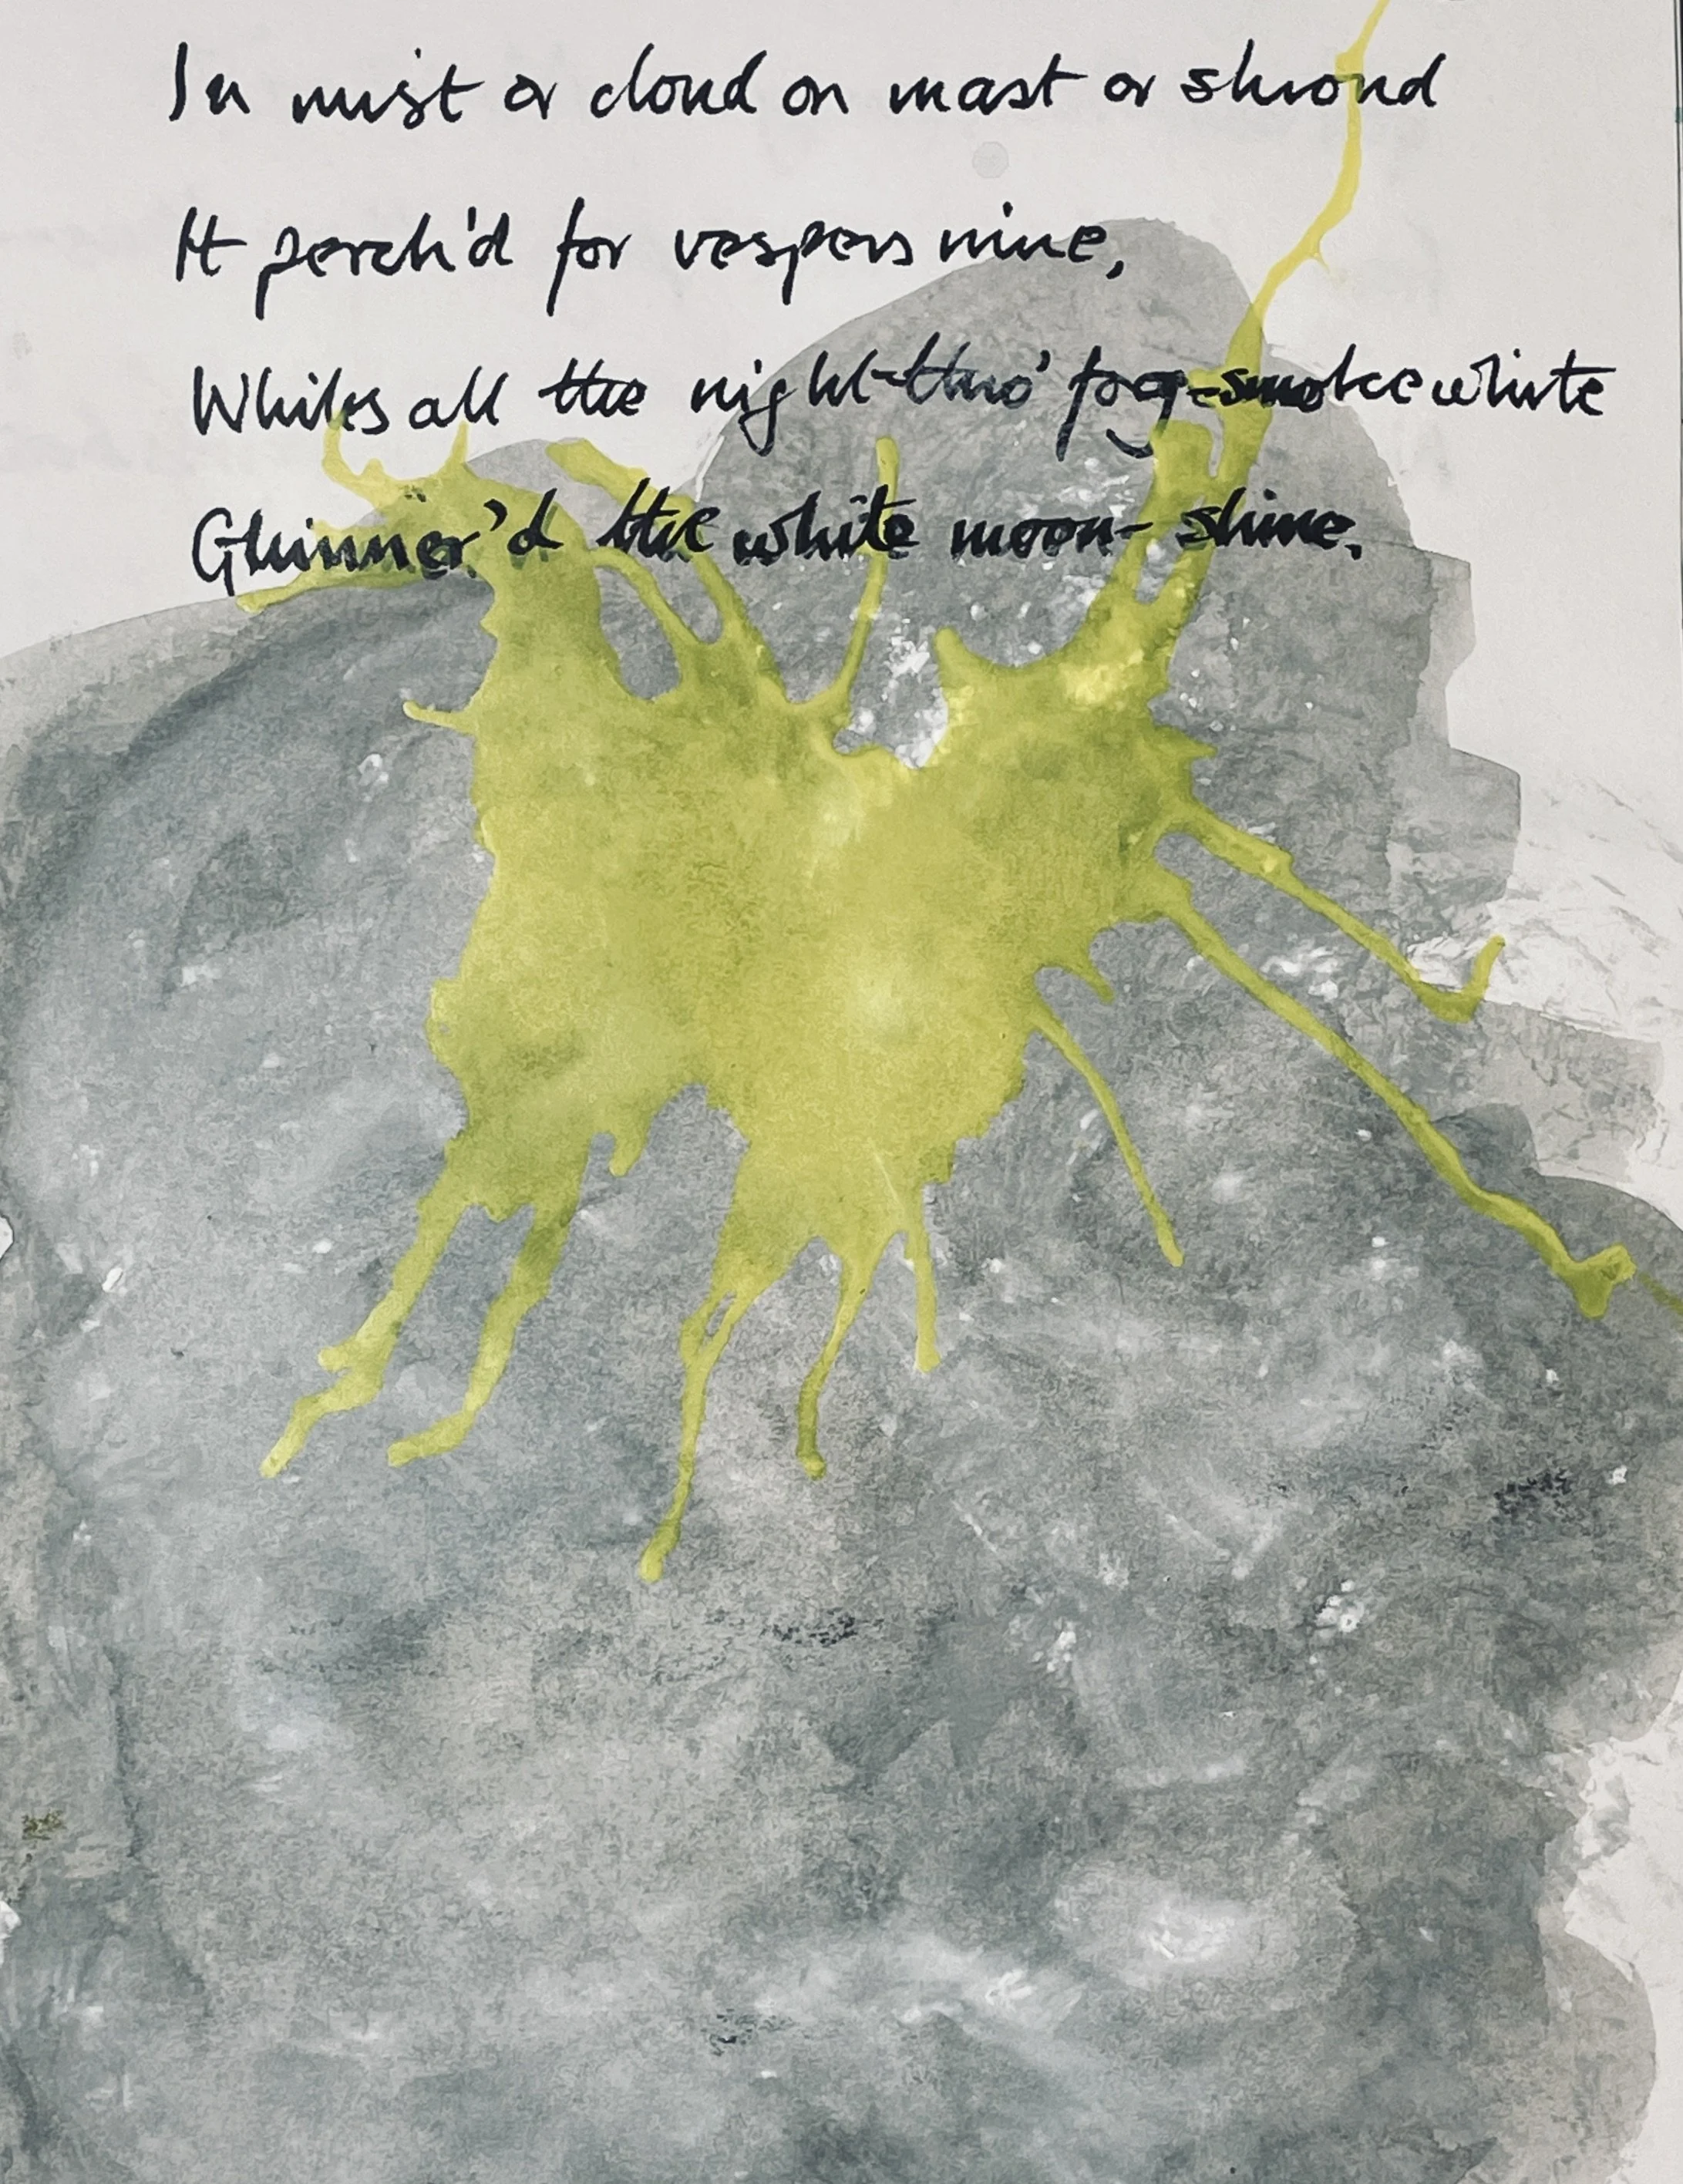 In mist or cloud on mast or shroud
It perch'd for vespers nine,
Whiles all the night thro' fog-smoke white
Glimmer'd the white moon-shine.